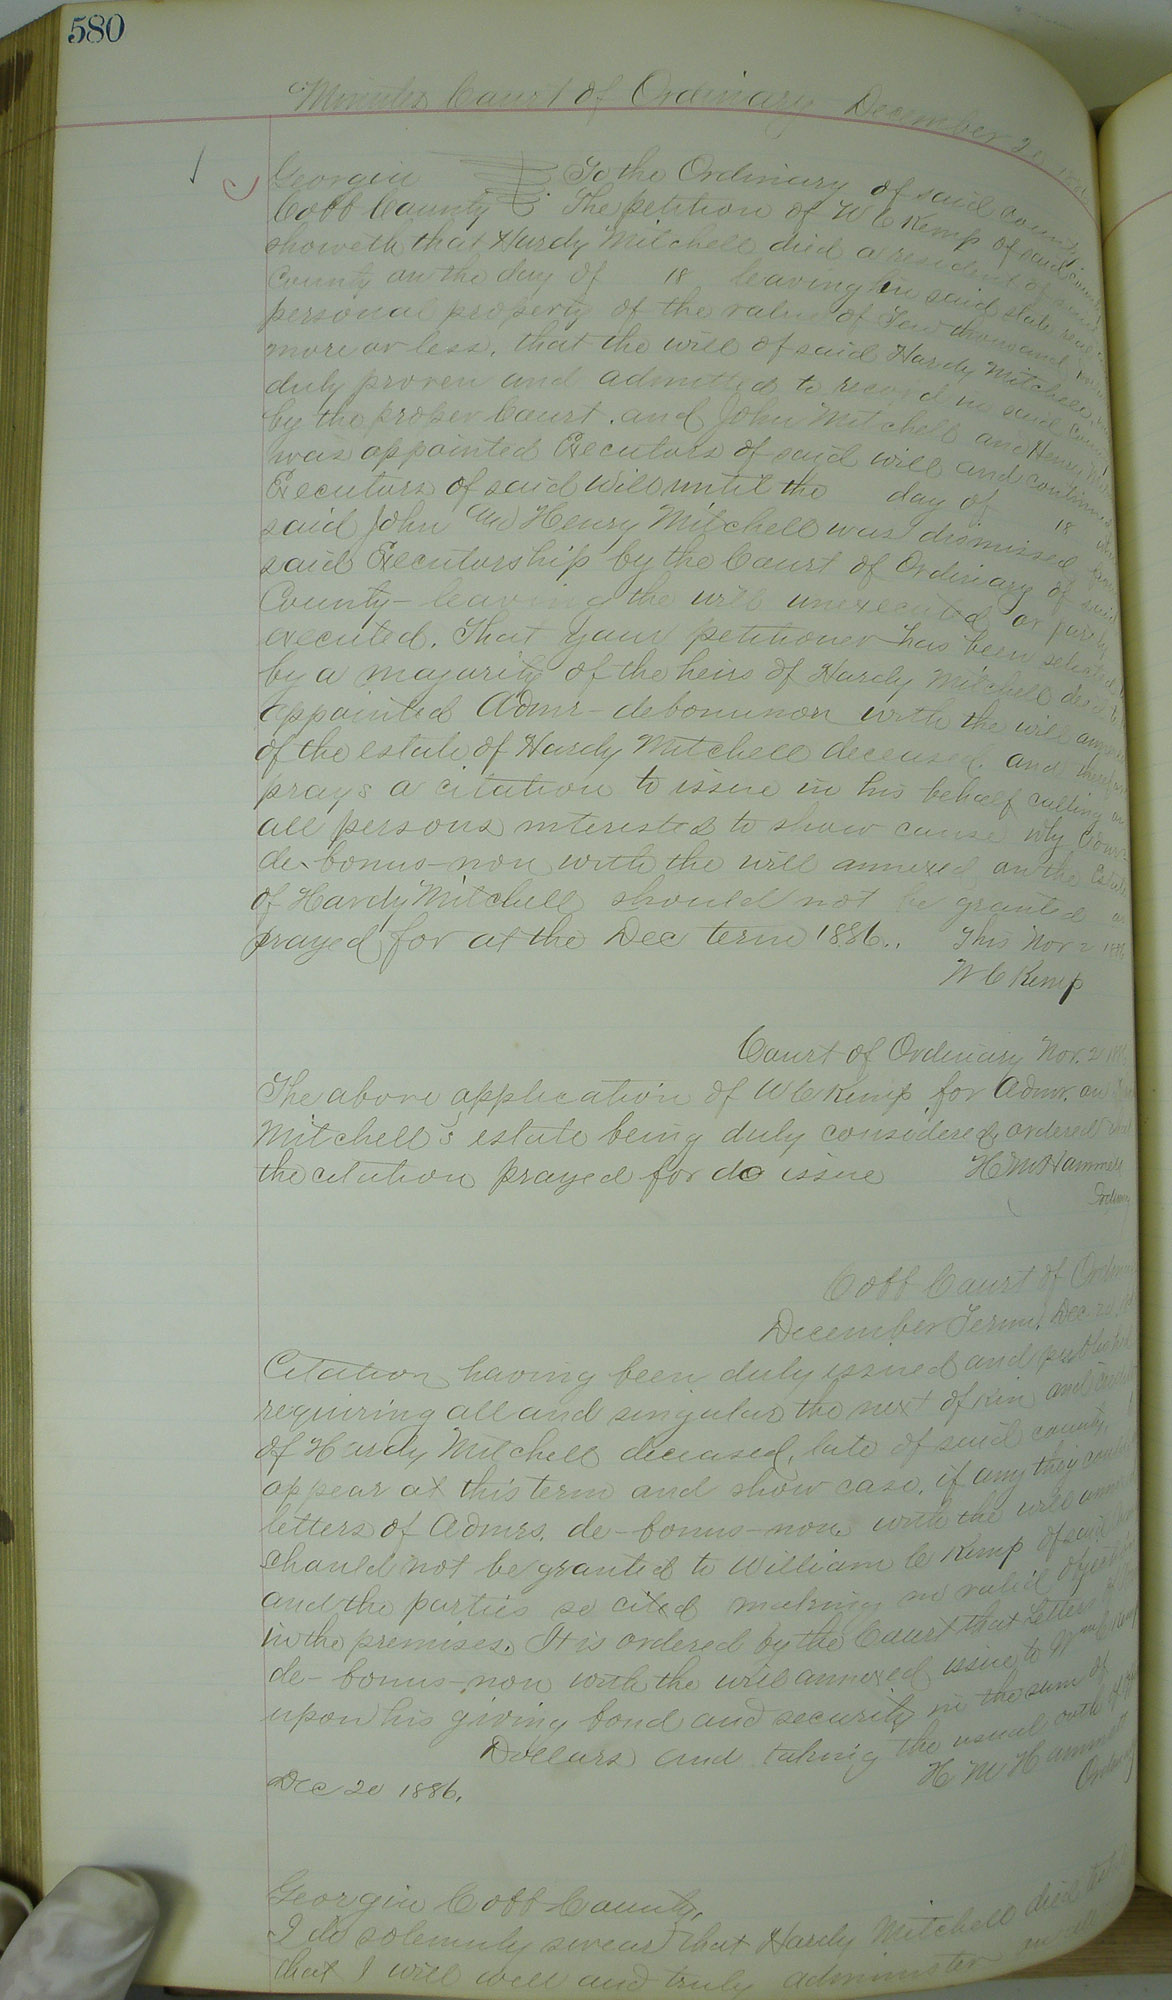 580
Minutes Court of Ordinary December 20
Georgia To the Ordinary of said County
Cobb County The petition of W C Kemp of said County
showeth that Hardy Mitchell died a resident of said
County on the day of 18 leaving in said state real
personal property of the value of Ten thousand
more or less, that the will of said Hardy Mitchell
duly proven and admitted to record in said County
by the proper Court, and John Mitchell and Henry
was appointed Executors of said will and continued
Executors of said Will until the day of 18
said John and Henry Mitchell was dismissed from
said Executorship by the Court of Ordinary of said
County - leaving the will unexecuted or partly
executed. That your petitioner has been selected
by a majority of the heirs of Hardy Mitchell
appointed Admr - debonusnon with the will annexed
of the estate of Hardy Mitchell deceased. and therefore
prays a citation to issue in his behalf calling on
all persons interested to show cause why Admr
de-bonus-non with the will annexed on the Estate
of Hardy Mitchell should not be granted as
prayed for at the Dec term 1886.. This Nov 2 1886
W C Kemp
Court of Ordinary Nov. 2
The above application of W C Kemp for Admr. on
Mitchell's estate being duly considered, ordered that
the citation prayed for do issue H M Hammett
Ordinary
Cobb Court of Ordinary
December Term, Dec 20
Citation having been duly issued and published
requiring all and singular the next of kin and
of Hardy Mitchell deceased, late of said county,
appear at this term and show case, if any they could
letters of Admrs. de-bonus-non with the will annexed
should not be granted to William C Kemp of said
and the parties so cited making no valid objection
in the premises. It is ordered by the Court that Letters
de-bonus-non with the will annexed issue to Wm C Kemp
upon his giving bond and security in the sum of
Dollars and taking the usual oath of
Dec 20 1886. H M Hammett
Ordinary
Georgia Cobb County,
I do solemnly swear that Hardy Mitchell died
that I will well and truly administer on